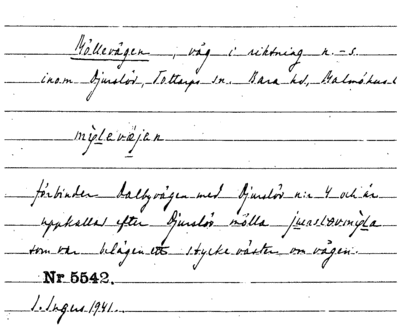 Möllevägen, väg i riktning n. – s.
inom Djurslöv, Tottarps sn. Bara hd, Malmöhus l
mỳlevæjen
förbinder Dalbyvägen med Djurslöv n:r 4 och är
uppkallad efter Djurslöv mölla
som var belägen ett stycke väster om vägen.
Nr 5542.
I. Ingers 1941.